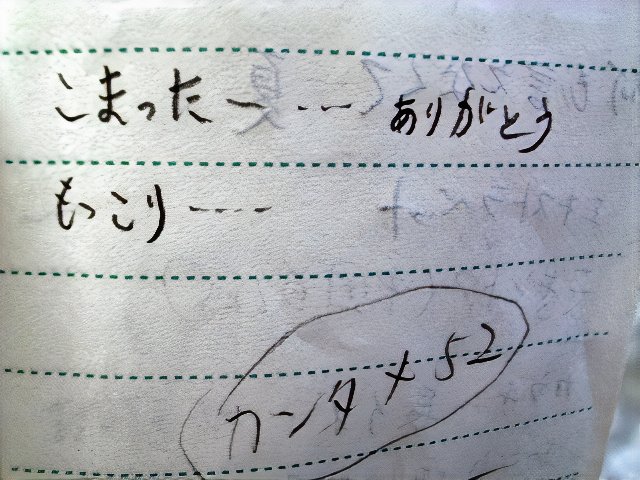 こまったー・・・ありがとう
もっこり----
カンタ×52